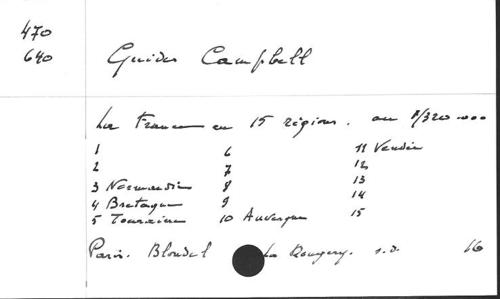 470
640
Guides Campbell
La France en 15 régions. au 1/320.000
1 6 11 Vendée
2 7 12
3 Normandie 8 13
4 Bretagne 9 14
5 Touraine 10 Auvergne 15
Paris. Blondel La Rougery. s.d. 16